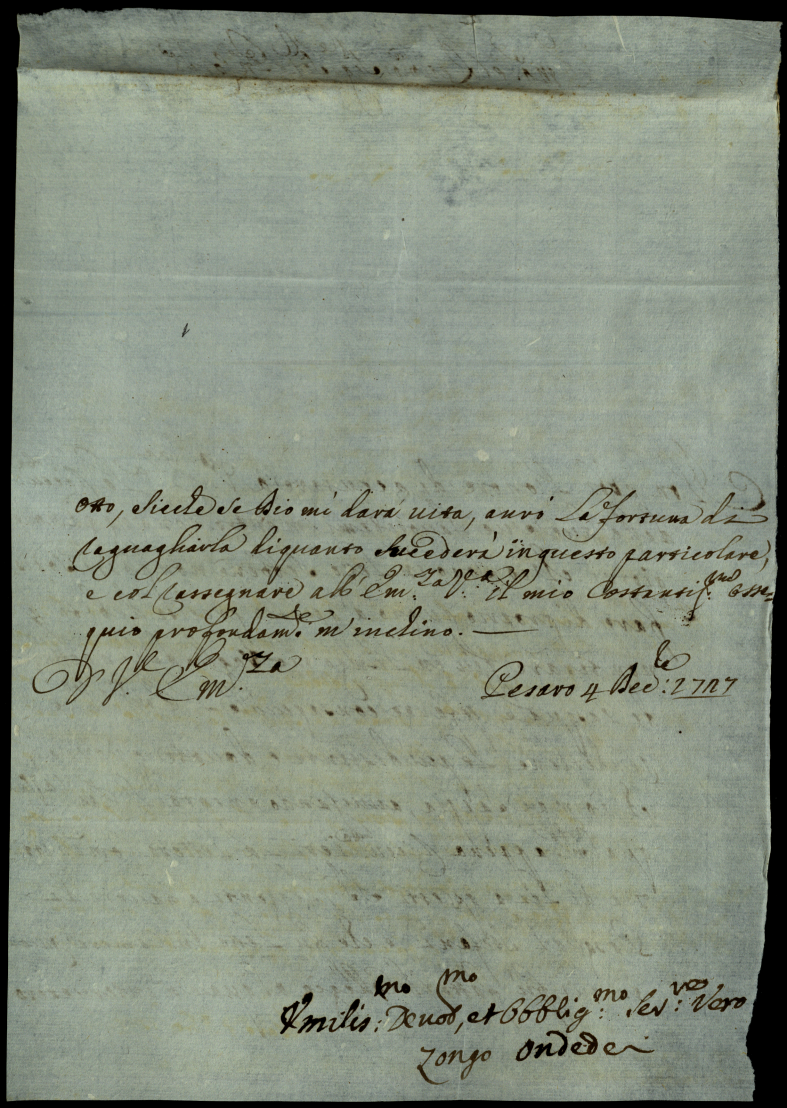 otto, sicche se Dio mi darà uita, aurò La fortuna di
raguagliarla diquanto Succederà inquesto particolare,
e col rassegnare all' Em.za V.ra il mio Costantiss.mo osse=
quio profondam.te m'inchino. —
D V.ra Em.za
Pesaro 4 Dec.bre 1727
Vmilis.mo Deuot.mo, et Obblig.mo Ser.reo Vero
Zongo Ondedei